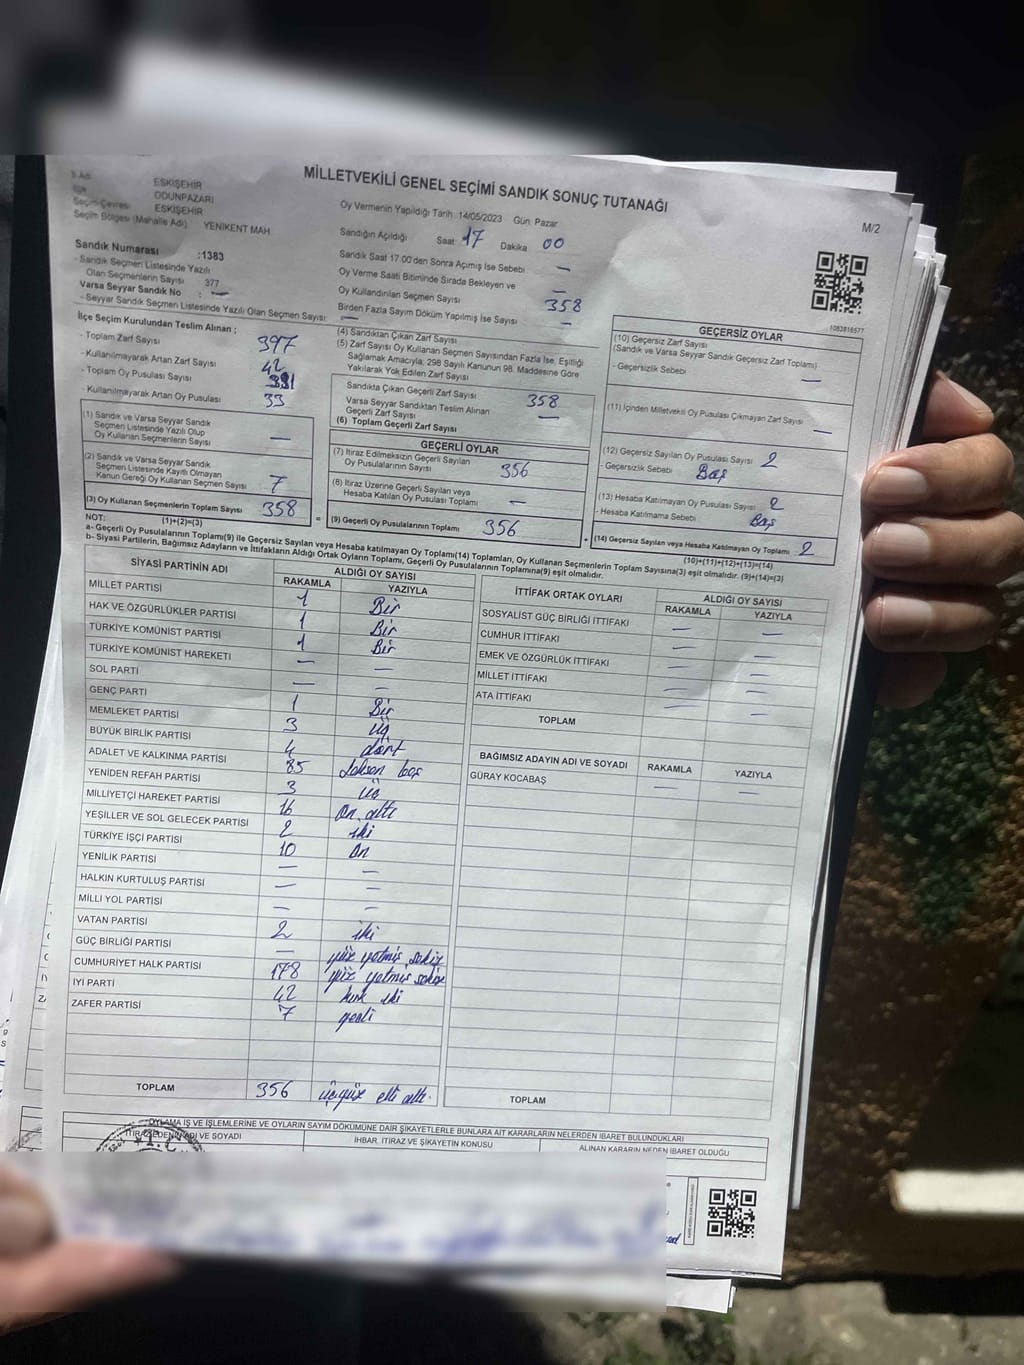 MİLLETVEKİLİ GENEL SEÇİMİ SANDIK SONUÇ TUTANAĞI
M/2
İl Adı ESKİŞEHİR
İlçe ODUNPAZARI
Seçim Çevresi ESKİŞEHİR
Seçim Bölgesi (Mahalle Adı) YENIKENT MAH
Sandık Numarası :1383
- Sandık Seçmen Listesinde Yazılı
Olan Seçmenlerin Sayısı 377
Varsa Seyyar Sandık No : —
- Seyyar Sandık Seçmen Listesinde Yazılı Olan Seçmen Sayısı: —
Oy Vermenin Yapıldığı Tarih : 14/05/2023 Gün: Pazar
Sandığın Açıldığı Saat: 17 Dakika 00
Sandık Saat 17.00'den Sonra Açılmış İse Sebebi —
Oy Verme Saati Bitiminde Sırada Bekleyen ve —
Oy Kullandırılan Seçmen Sayısı 358
Birden Fazla Sayım Döküm Yapılmış İse Sayısı —
1083816577
İlçe Seçim Kurulundan Teslim Alınan ;
- Toplam Zarf Sayısı 397
- Kullanılmayarak Artan Zarf Sayısı 42
- Toplam Oy Pusulası Sayısı
- Kullanılmayarak Artan Oy Pusulası 33
(1) Sandık ve Varsa Seyyar Sandık
Seçmen Listesinde Yazılı Olup
Oy Kullanan Seçmenlerin Sayısı —
(2) Sandık ve Varsa Seyyar Sandık
Seçmen Listesinde Kayıtlı Olmayan
Kanun Gereği Oy Kullanan Seçmen Sayısı 7
(3) Oy Kullanan Seçmenlerin Toplam Sayısı 358
(4) Sandıktan Çıkan Zarf Sayısı
(5) Zarf Sayısı Oy Kullanan Seçmen Sayısından Fazla İse, Eşitliği
Sağlamak Amacıyla; 298 Sayılı Kanunun 98. Maddesine Göre
Yakılarak Yok Edilen Zarf Sayısı
Sandıkta Çıkan Geçerli Zarf Sayısı 358
Varsa Seyyar Sandıktan Teslim Alınan
Geçerli Zarf Sayısı —
(6) Toplam Geçerli Zarf Sayısı
GEÇERLİ OYLAR
(7) İtiraz Edilmeksizin Geçerli Sayılan
Oy Pusulalarının Sayısı 356
(8) İtiraz Üzerine Geçerli Sayılan veya
Hesaba Katılan Oy Pusulası Toplamı —
= (9) Geçerli Oy Pusulalarının Toplamı 356
GEÇERSİZ OYLAR
(10) Geçersiz Zarf Sayısı
(Sandık ve Varsa Seyyar Sandık Geçersiz Zarf Toplamı)
- Geçersizlik Sebebi —
(11) İçinden Milletvekili Oy Pusulası Çıkmayan Zarf Sayısı —
(12) Geçersiz Sayılan Oy Pusulası Sayısı 2
- Geçersizlik Sebebi Boş
(13) Hesaba Katılmayan Oy Pusulası Sayısı 2
- Hesaba Katılmama Sebebi Boş
+ (14) Geçersiz Sayılan veya Hesaba Katılmayan Oy Toplamı : 2
NOT: (1)+(2)=(3) (10)+(11)+(12)+(13)=(14)
a- Geçerli Oy Pusulalarının Toplamı(9) ile Geçersiz Sayılan veya Hesaba katılmayan Oy Toplamı(14) Toplamları, Oy Kullanan Seçmenlerin Toplam Sayısına(3) eşit olmalıdır. (9)+(14)=(3)
b- Siyasi Partilerin, Bağımsız Adayların ve İttifakların Aldığı Ortak Oyların Toplamı, Geçerli Oy Pusulalarının Toplamına(9) eşit olmalıdır.
SİYASİ PARTİNİN ADI ALDIĞI OY SAYISI
RAKAMLA YAZIYLA
MİLLET PARTİSİ 1 Bir
HAK VE ÖZGÜRLÜKLER PARTİSİ 1 Bir
TÜRKİYE KOMÜNİST PARTİSİ 1 Bir
TÜRKİYE KOMÜNİST HAREKETİ — —
SOL PARTİ — —
GENÇ PARTİ 1 Bir
MEMLEKET PARTİSİ 3 üç
BÜYÜK BİRLİK PARTİSİ 4 dört
ADALET VE KALKINMA PARTİSİ 85 seksen beş
YENİDEN REFAH PARTİSİ 3 üç
MİLLİYETÇİ HAREKET PARTİSİ 16 On altı
YEŞİLLER VE SOL GELECEK PARTİSİ 2 iki
TÜRKİYE İŞÇİ PARTİSİ 10 on
YENİLİK PARTİSİ — —
HALKIN KURTULUŞ PARTİSİ — —
MİLLİ YOL PARTİSİ — —
VATAN PARTİSİ 2 iki
GÜÇ BİRLİĞİ PARTİSİ — yüz yetmiş sekiz
CUMHURİYET HALK PARTİSİ 178 yüz yetmiş sekiz
İYİ PARTİ 42 kırk iki
ZAFER PARTİSİ 7 yedi
TOPLAM 356 üçyüz elli altı.
İTTİFAK ORTAK OYLARI ALDIĞI OY SAYISI
RAKAMLA YAZIYLA
SOSYALİST GÜÇ BİRLİĞİ İTTİFAKI — —
CUMHUR İTTİFAKI — —
EMEK VE ÖZGÜRLÜK İTTİFAKI — —
MİLLET İTTİFAKI — —
ATA İTTİFAKI — —
TOPLAM
BAĞIMSIZ ADAYIN ADI VE SOYADI RAKAMLA YAZIYLA
GÜRAY KOCABAŞ — —
TOPLAM
OYLAMA İŞ VE İŞLEMLERİNE VE OYLARIN SAYIM DÖKÜMÜNE DAİR ŞİKAYETLERLE BUNLARA AİT KARARLARIN NELERDEN İBARET BULUNDUKLARI
İTİRAZ EDENİN ADI VE SOYADI İHBAR, İTİRAZ VE ŞİKAYETİN KONUSU ALINAN KARARIN NEDEN İBARET OLDUĞU
T.C.